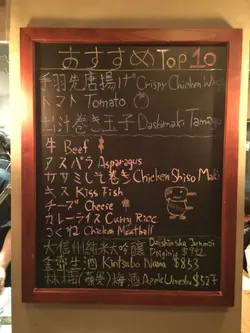 おすすめ Top 10
手羽先唐揚げ Crispy Chicken Wings
トマト Tomato
出汁巻き玉子 Dashimaki Tamago
牛 Beef
アスパラ Asparagus
ササミしそ巻き Chicken Shiso Maki
キス Kiss Fish
チーズ Cheese
カレーライス Curry Rice
つくね Chicken Meatball
大信州純米大吟醸 Daishinshu Junmai
金寶生酒 Kintsubo Nama $853
林檎梅酒 Apple Umeshu $527